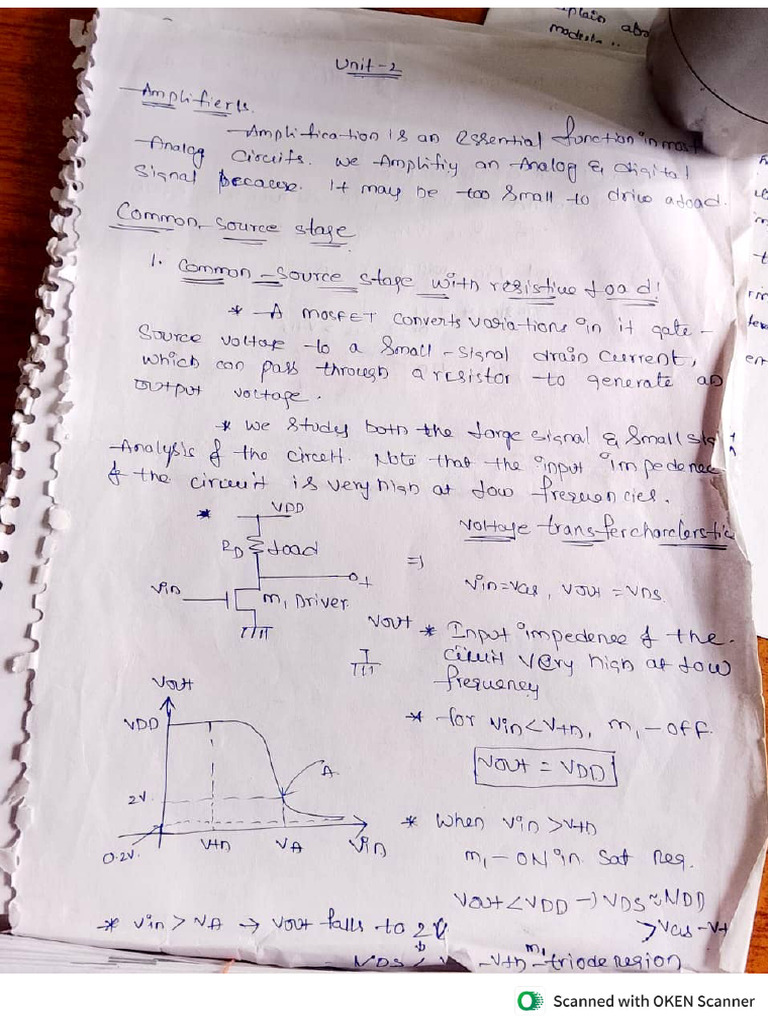 plain abo
modesta..
Unit-2
Amplifiers.
Amplification is an essential function in most
Analog circuits. we Amplifiy an Analog & digital
Signal because. It may be too small to drive a load.
Common-source stage
1. Common-source stage with resistive load!
* A MOSFET converts variations in it gate-
source voltage to a small-signal drain current,
which can pass through a resistor to generate an
output voltage.
* we study both the large signal & small sig
Analysis of the circuit. Note that the input impedence
of the circuit is very high at low frequencies.
* VDD
RD load
Vin
M, Driver.
+
Vout
Voltage transfercharcterstic
⇒ Vin=VGS, Vout = VDS.
* Input impedence of the.
circuit very high at low
frequency
* for Vin<Vtn, M,-off.
Vout = VDD
Vout
VDD
2V.
0.2V.
Vtn
VA
Vin
A
* When Vin>Vtn
M,-ON in Sat Reg.
Vout<VDD → VDS≈VDD
>VGS-Vt
* Vin > VA → Vout falls to 2V
VDS < -Vtn M, -triode region
Scanned with OKEN Scanner